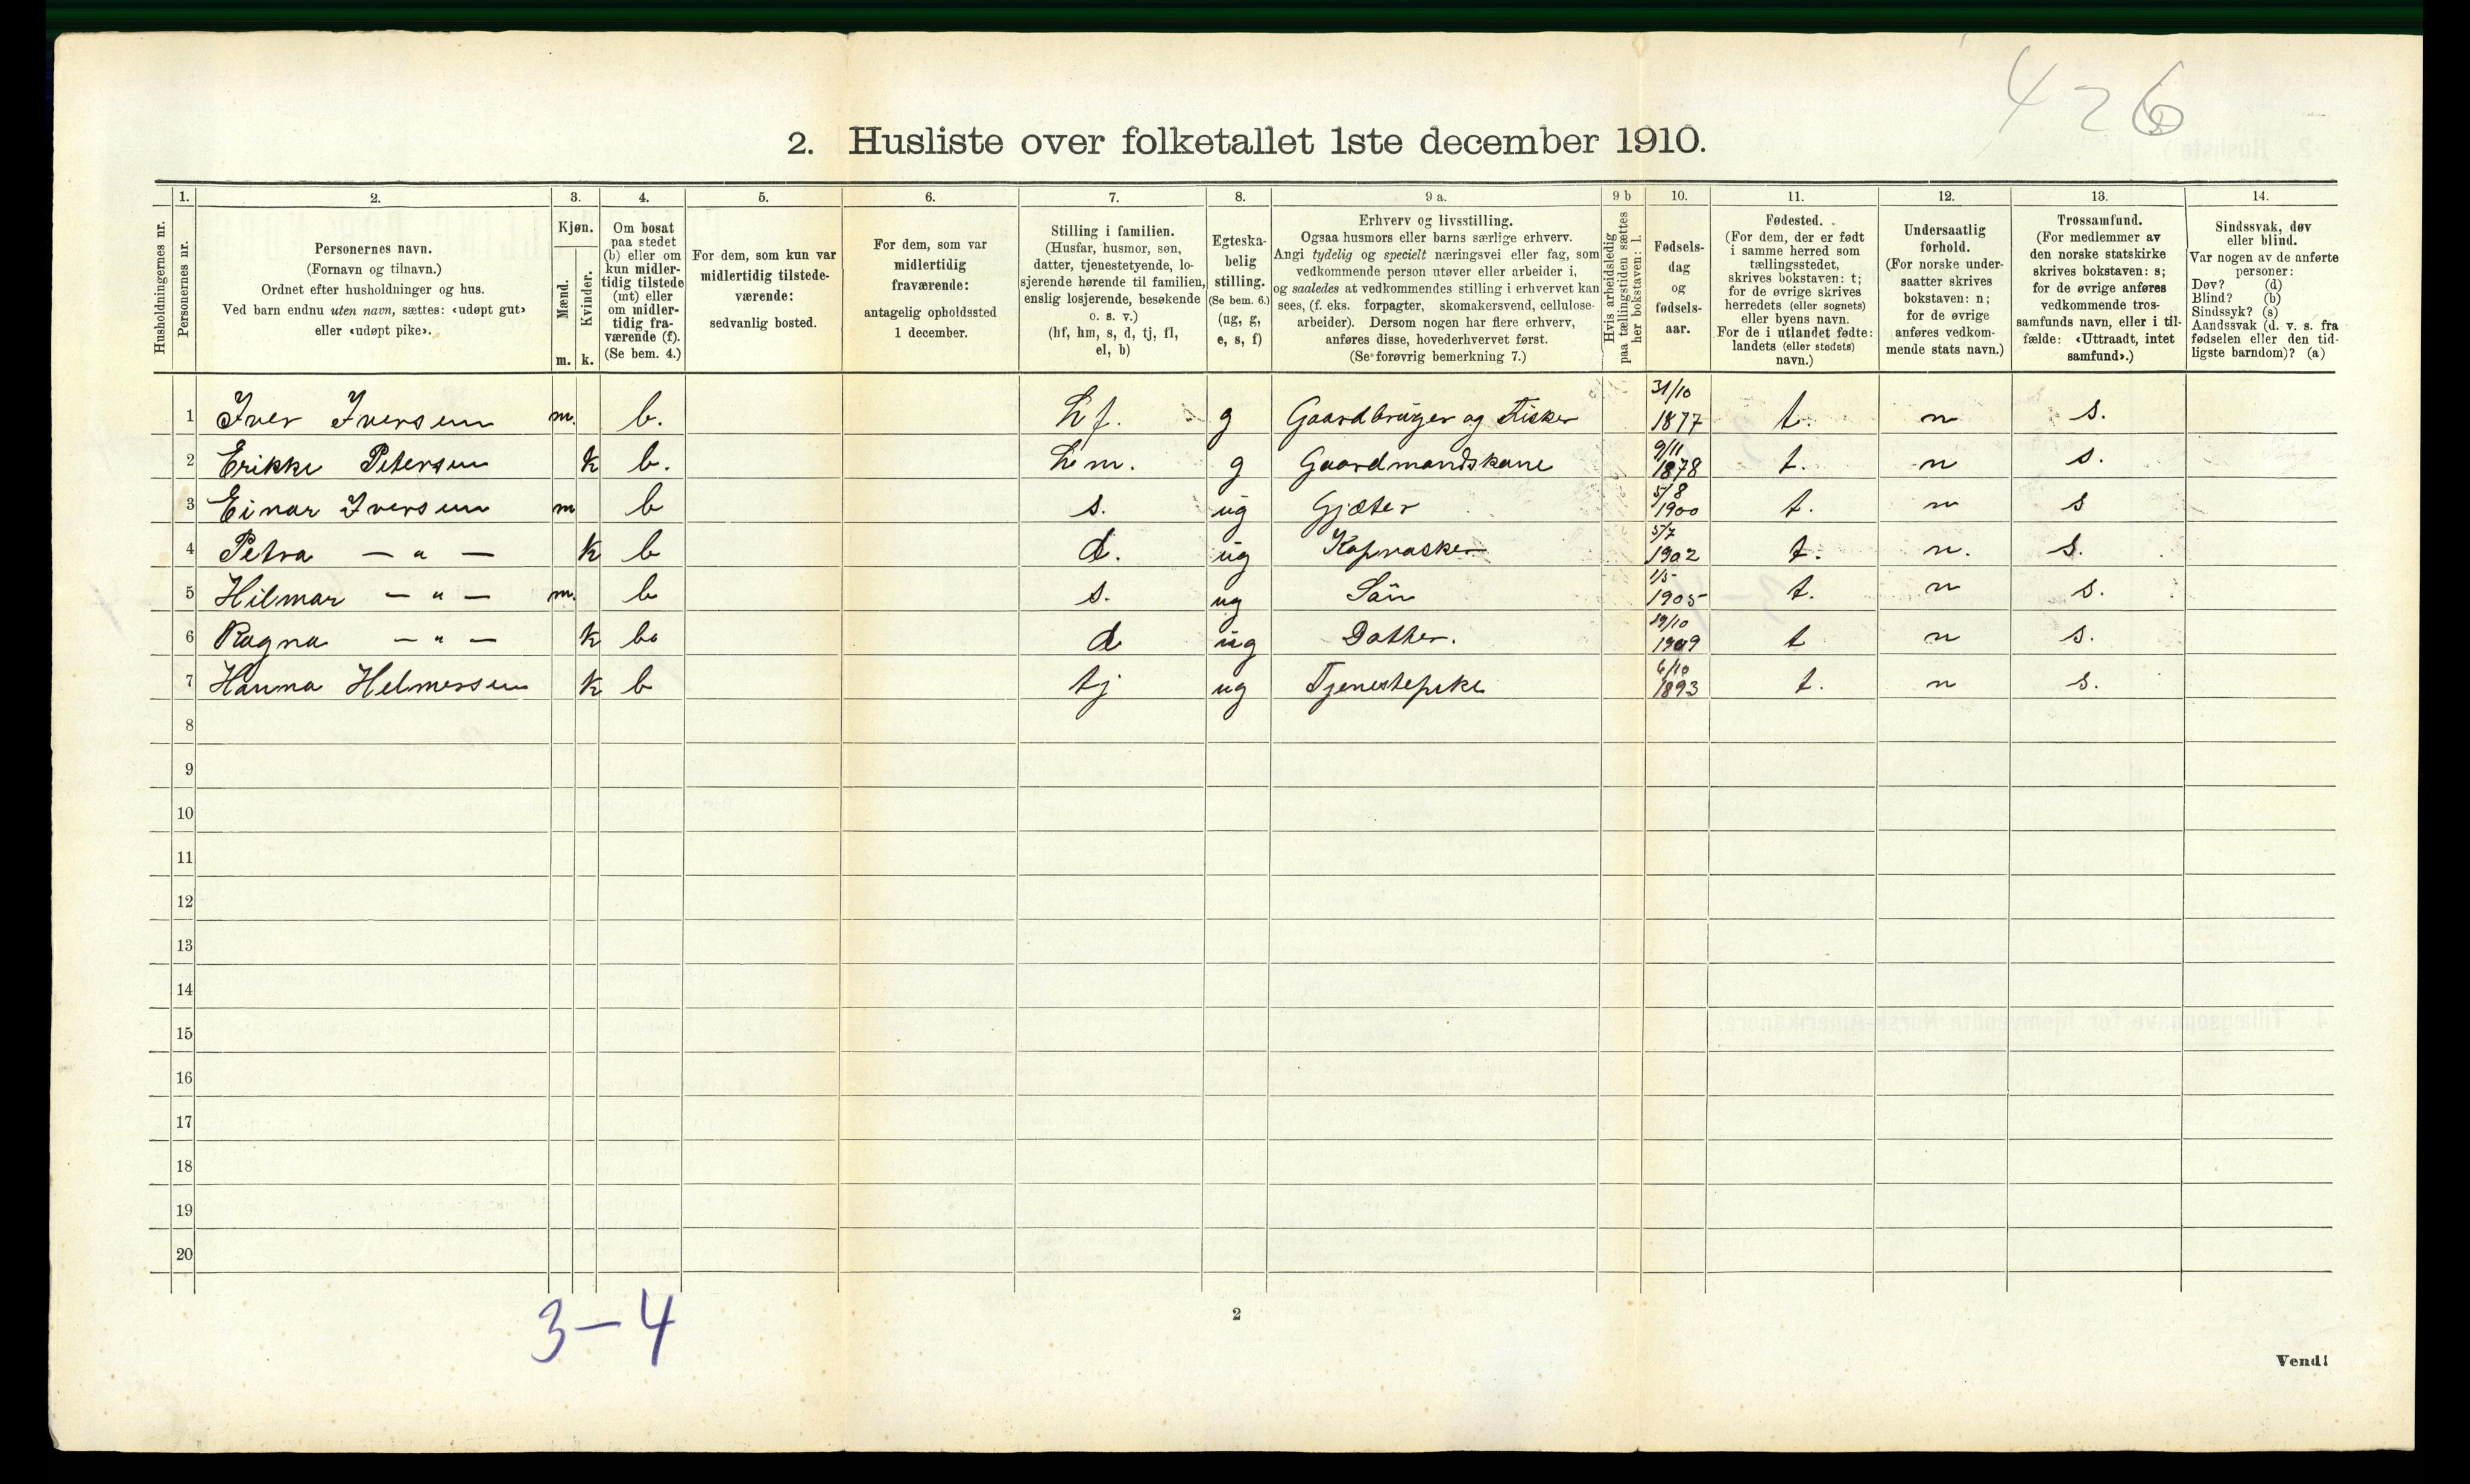 426
2. Husliste over folketallet 1ste december 1910.
Husholdningernes nr.
1.
Personernes nr.
2.
Personernes navn.
(Fornavn og tilnavn.)
Ordnet efter husholdninger og hus.
Ved barn endnu uten navn, sættes: «udøpt gut»
eller «udøpt pike».
3.
Kjøn.
Mænd.
Kvinder.
m. k.
4.
Om bosat
paa stedet
(b) eller om
kun midler-
tidig tilstede
(mt) eller
om midler-
tidig fra-
værende (f).
(Se bem. 4.)
5.
For dem, som kun var
midlertidig tilstede-
værende:
sedvanlig bosted.
6.
For dem, som var
midlertidig
fraværende:
antagelig opholdssted
1 december.
7.
Stilling i familien.
(Husfar, husmor, søn,
datter, tjenestetyende, lo-
sjerende hørende til familien,
enslig losjerende, besøkende
o. s. v.)
(hf, hm, s, d, tj, fl,
el, b)
8.
Egteska-
belig
stilling.
(Se bem. 6.)
(ug, g,
e, s, f)
9 a.
Erhverv og livsstilling.
Ogsaa husmors eller barns særlige erhverv.
Angi tydelig og specielt næringsvei eller fag, som
vedkommende person utøver eller arbeider i,
og saaledes at vedkommendes stilling i erhvervet kan
sees, (f. eks. forpagter, skomakersvend, cellulose-
arbeider). Dersom nogen har flere erhverv,
anføres disse, hovederhvervet først.
(Se forøvrig bemerkning 7.)
9 b
Hvis arbeidsledig
paa tællingstiden sættes
her bokstaven: l.
10.
Fødsels-
dag
og
fødsels-
aar.
11.
Fødested.
(For dem, der er født
i samme herred som
tællingsstedet,
skrives bokstaven: t;
for de øvrige skrives
herredets (eller sognets)
eller byens navn.
For de i utlandet fødte:
landets (eller stedets)
navn.)
12.
Undersaatlig
forhold.
(For norske under-
saatter skrives
bokstaven: n;
for de øvrige
anføres vedkom-
mende stats navn.)
13.
Trossamfund.
(For medlemmer av
den norske statskirke
skrives bokstaven: s;
for de øvrige anføres
vedkommende tros-
samfunds navn, eller i til-
fælde: «Uttraadt, intet
samfund».)
14.
Sindssvak, døv
eller blind.
Var nogen av de anførte
personer:
Døv? (d)
Blind? (b)
Sindssyk? (s)
Aandssvak (d. v. s. fra
fødselen eller den tid-
ligste barndom)? (a)
1 Iver Iversen m. b. hf. g Gaardbruger og Fisker 31/10 1877 t. n s.
2 Erikke Petersen k b. hm. g Gaardmandskone 9/11 1878 t. n s.
3 Einar Iversen m b s. ug Gjæter 5/8 1900 t. n s
4 Petra — " — k b d. ug Kopvasker 5/7 1902 t. n. s.
5 Hilmar — " — m. b s. ug Sön 1/5 1905 t. n s.
6 Ragna — " — k b d ug Datter. 19/10 1909 t n s.
7 Hanna Helmersen k b tj ug Tjenestepike 6/10 1893 t. n s.
8
9
10
11
12
13
14
15
16
17
18
19
20
3-4
2
Vend!